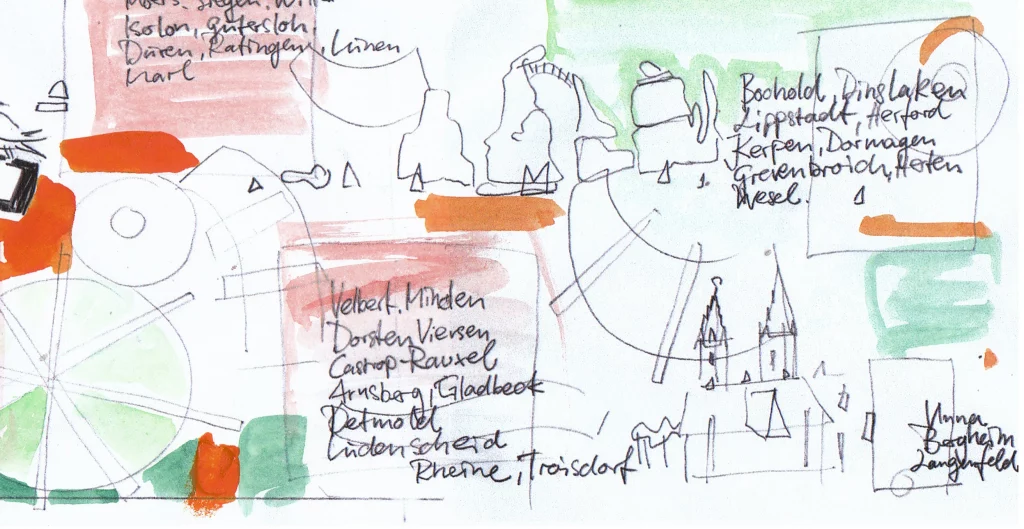 Moers. Siegen. Witt-
Isolon, gütersloh
Düren, Ratingen, Lünen
Marl
Bochold, Dinslaken
Lippstadt, Herford
Kerpen, Dormagen
Grevenbroich, Herten
Wesel.
Velbert. Minden
Dorsten Viersen
Castrop-Rauxel
Arnsberg, Gladbeck
Detmold
Lüdenscheid
Rheine, Troisdorf
Unna
Bergheim
Langenfeld